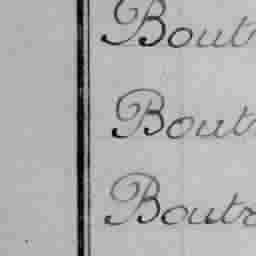 Bout
Bout
Boutr